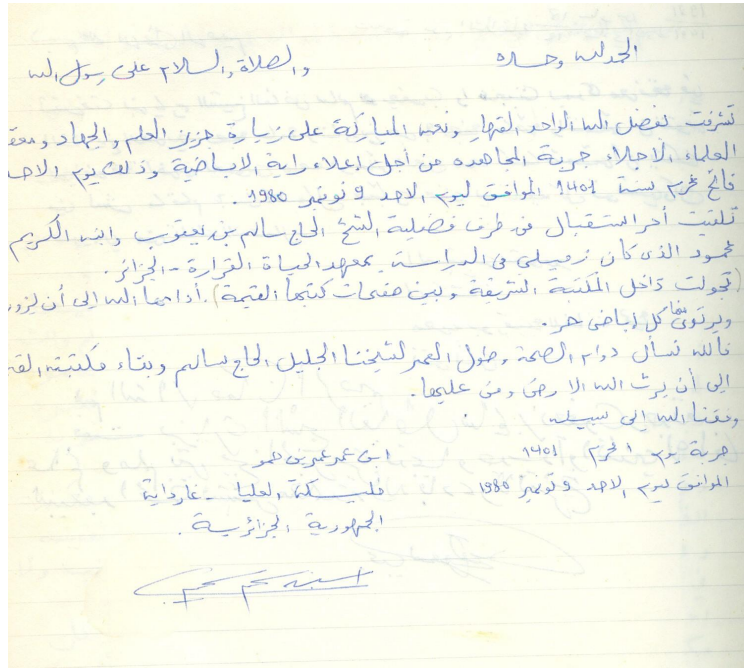 الحمد لله وحده والصلاة والسلام على رسول الله
تشرفت بفضل الله الواحد القهار ونعمه المباركة على زيارة جزيرة العلم والجهاد ومعق
العلماء الاجلاء جربة المجاهدة من أجل إعلاء راية الاباضية وذلك يوم الاحد
فاتح محرم سنة 1401 الموافق ليوم الاحد 9 نوفمبر 1980.
تلقيت أحر استقبال من طرف فضيلة الشيخ الحاج سالم بن يعقوب وابنه الكريم
محمود الذي كان زميلي في الدراسة بمعهد الحياة القرارة - الجزائر.
(تجولت داخل المكتبة الشريفة وبين صفحات كتبها القيمة). أدامها الله إلى أن يزور
ويرتوي منها كل إباضي حر.
فالله نسأل دوام الصحة وطول العمر لشيخنا الجليل الحاج سالم وبقاء مكتبته الق
إلى أن يرث الله الارض ومن عليها.
وفقنا الله إلى سبيله.
جربة يوم المحرم 1401 ابن عمر عمر بن حمو
الموافق ليوم الاحد 9 نوفمبر 1980 مليكة العليا - غارداية
الجمهورية الجزائرية.